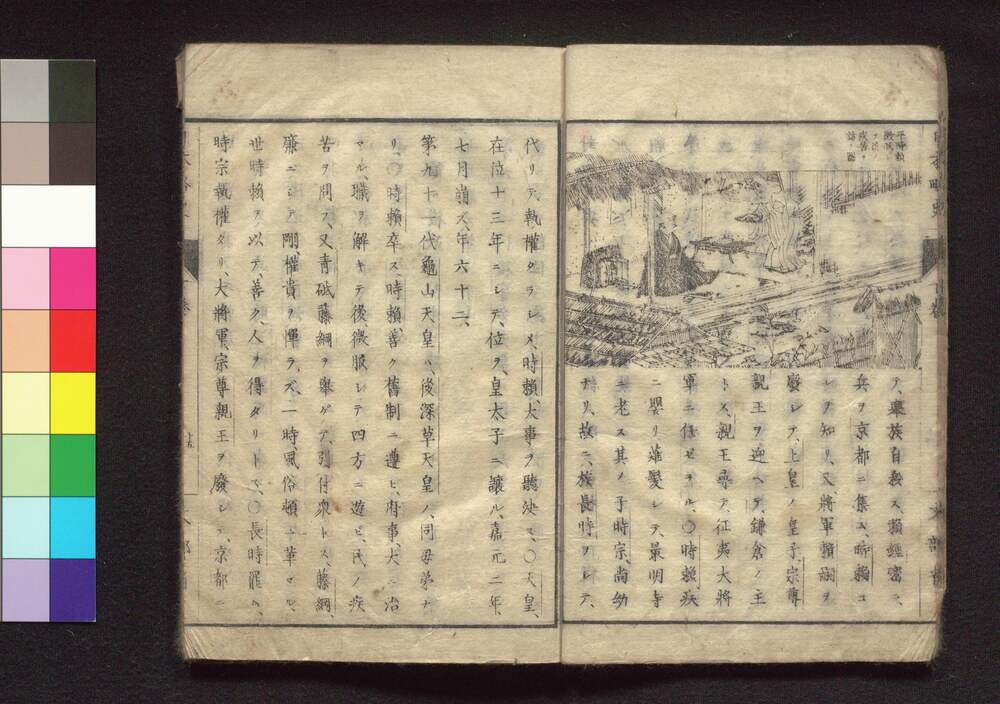 平時頼
微服シ
テ民ノ
疾苦ヲ
訪フ圖
テ、擧族自殺ス、頼經密ニ、
兵ヲ京都ニ集ム、時頼コ
レヲ知リ、又將軍頼嗣ヲ
廢シテ、上皇ノ皇子、宗尊
親王ヲ迎ヘテ、鎌倉ノ主
トス、親王尋テ、征夷大將
軍ニ任ゼラル、〇時頼疾
ニ嬰リ薙髪シテ、最明寺
ニ老ス其ノ子時宗、尚幼
ナリ、故ニ、族長時ヲシテ、
代リテ、執權タラシメ、時頼、大事ヲ聽決ス、〇天皇、
在位十三年ニシテ、位ヲ、皇太子ニ讓ル、嘉元二年、
七月崩ズ、年六十二、
第九十一代龜山天皇ハ、後深草天皇ノ、同母弟ナ
リ、〇時頼卒ス、時頼、善ク舊制ニ遵ヒ、内事、大ニ治
マル、職ヲ解キテ後微服シテ四方ニ遊ビ、民ノ疾
苦ヲ問フ、又青砥藤綱ヲ擧ゲテ、引付衆トス、藤綱、
廉ニシテ剛、權貴ヲ憚ラズ、一時、風俗頓ニ革マル、
世時頼ヲ以テ、善ク、人ヲ得タリトス、〇長時罷ム、
時宗執權タリ、大將軍、宗尊親王ヲ廢シテ、京都ニ